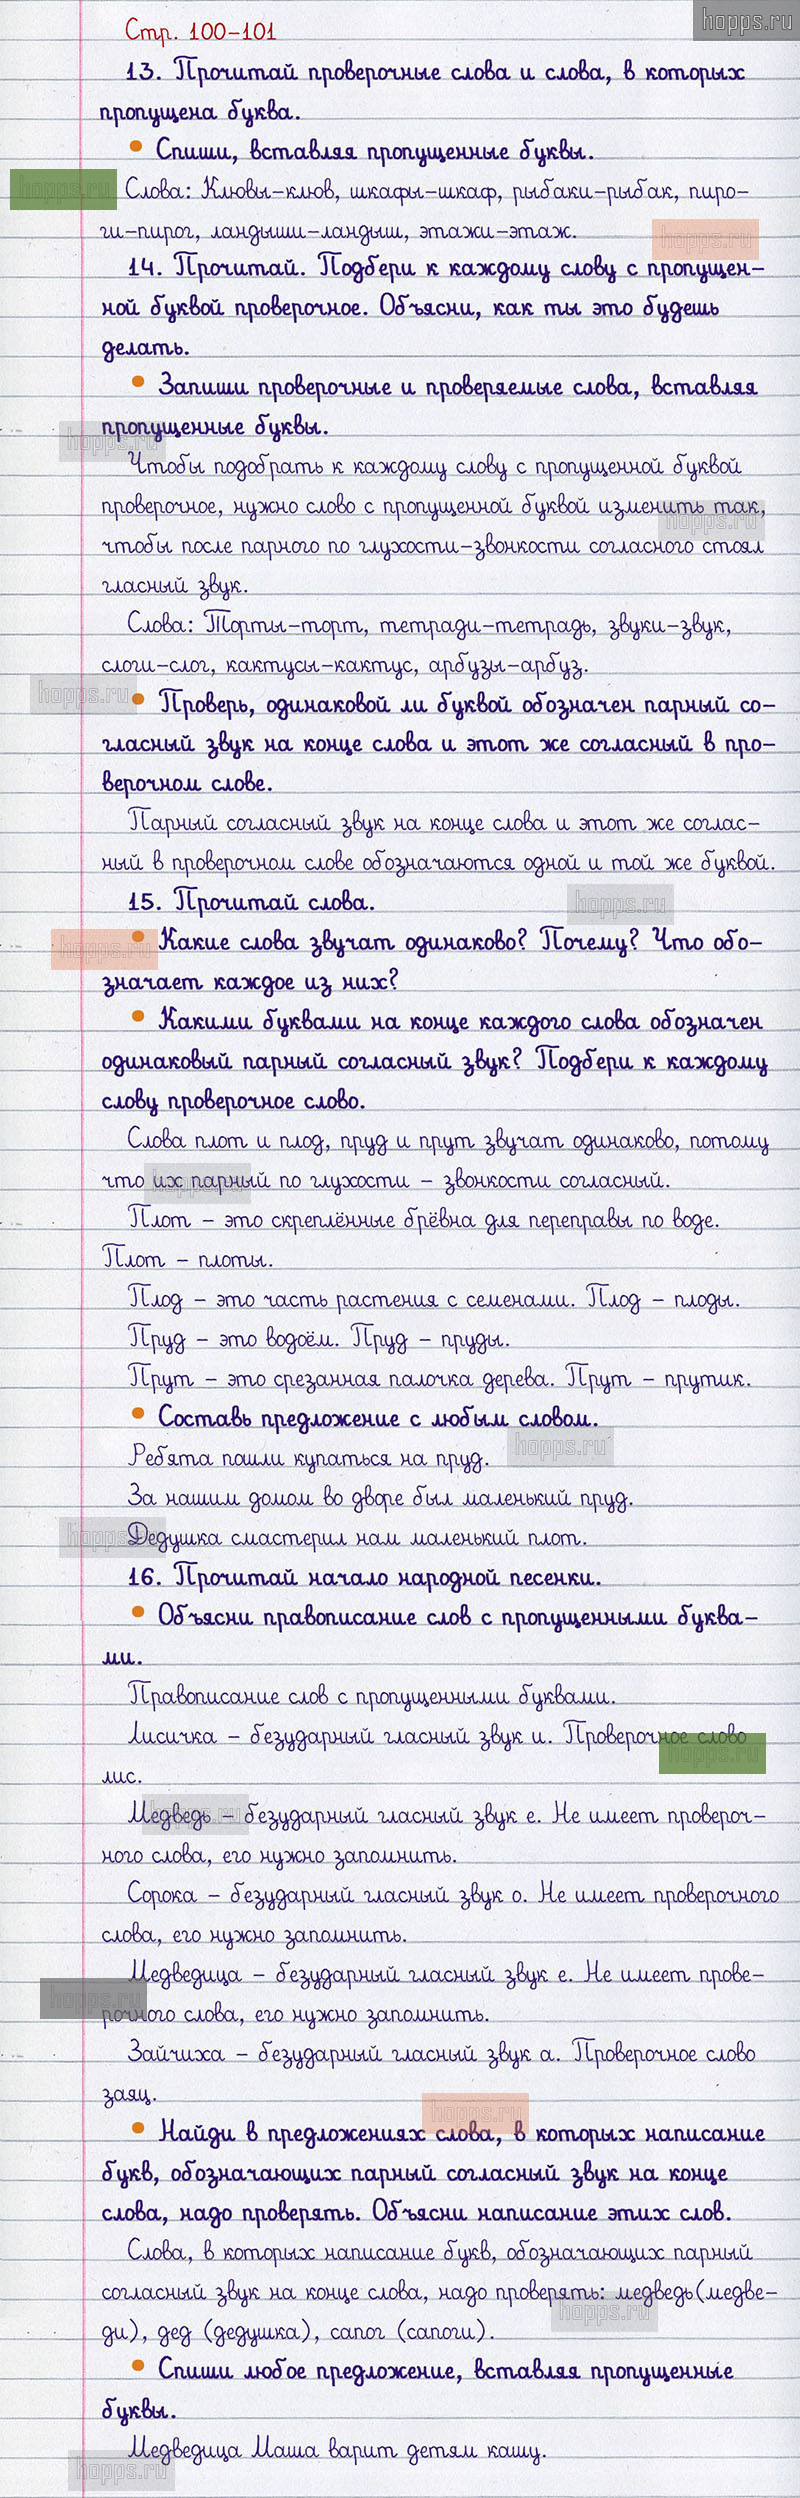 hopps.ru
Стр. 100-101
13. Прочитай проверочные слова и слова, в которых
пропущена буква.
• Спиши, вставляя пропущенные буквы.
hopps.ru
Слова: Клювы-клюв, шкафы-шкаф, рыбаки-рыбак, пиро-
ги-пирог, ландыши-ландыш, этажи-этаж.
hopps.ru
14. Прочитай. Подбери к каждому слову с пропущен-
ной буквой проверочное. Объясни, как ты это будешь
делать.
• Запиши проверочные и проверяемые слова, вставляя
пропущенные буквы.
hopps.ru
Чтобы подобрать к каждому слову с пропущенной буквой
проверочное, нужно слово с пропущенной буквой изменить так,
hopps.ru
чтобы после парного по глухости-звонкости согласного стоял
гласный звук.
Слова: Торты-торт, тетради-тетрадь, звуки-звук,
слоги-слог, кактусы-кактус, арбузы-арбуз.
hopps.ru
• Проверь, одинаковой ли буквой обозначен парный со-
гласный звук на конце слова и этот же согласный в про-
верочном слове.
Парный согласный звук на конце слова и этот же соглас-
ный в проверочном слове обозначаются одной и той же буквой.
15. Прочитай слова.
hopps.ru
hopps.ru
• Какие слова звучат одинаково? Почему? Что обо-
значает каждое из них?
• Какими буквами на конце каждого слова обозначен
одинаковый парный согласный звук? Подбери к каждому
слову проверочное слово.
Слова плот и плод, пруд и прут звучат одинаково, потому
что их парный по глухости - звонкости согласный.
hopps.ru
Плот - это скреплённые брёвна для переправы по воде.
Плот - плоты.
Плод - это часть растения с семенами. Плод - плоды.
Пруд - это водоём. Пруд - пруды.
Прут - это срезанная палочка дерева. Прут - прутик.
• Составь предложение с любым словом.
hopps.ru
Ребята пошли купаться на пруд.
За нашим домом во дворе был маленький пруд.
hopps.ru
Дедушка смастерил нам маленький плот.
16. Прочитай начало народной песенки.
• Объясни правописание слов с пропущенными буква-
ми.
Правописание слов с пропущенными буквами.
Лисичка - безударный гласный звук и. Проверочное слово
hopps.ru
лис.
Медведь - безударный гласный звук е. Не имеет провероч-
hopps.ru
ного слова, его нужно запомнить.
Сорока - безударный гласный звук о. Не имеет проверочного
слова, его нужно запомнить.
Медведица - безударный гласный звук е. Не имеет прове-
hopps.ru
рочного слова, его нужно запомнить.
Зайчиха - безударный гласный звук а. Проверочное слово
заяц.
hopps.ru
• Найди в предложениях слова, в которых написание
букв, обозначающих парный согласный звук на конце
слова, надо проверять. Объясни написание этих слов.
Слова, в которых написание букв, обозначающих парный
согласный звук на конце слова, надо проверять: медведь(медве-
hopps.ru
ди), дед (дедушка), сапог (сапоги).
• Спиши любое предложение, вставляя пропущенные
буквы.
Медведица Маша варит детям кашу.
hopps.ru